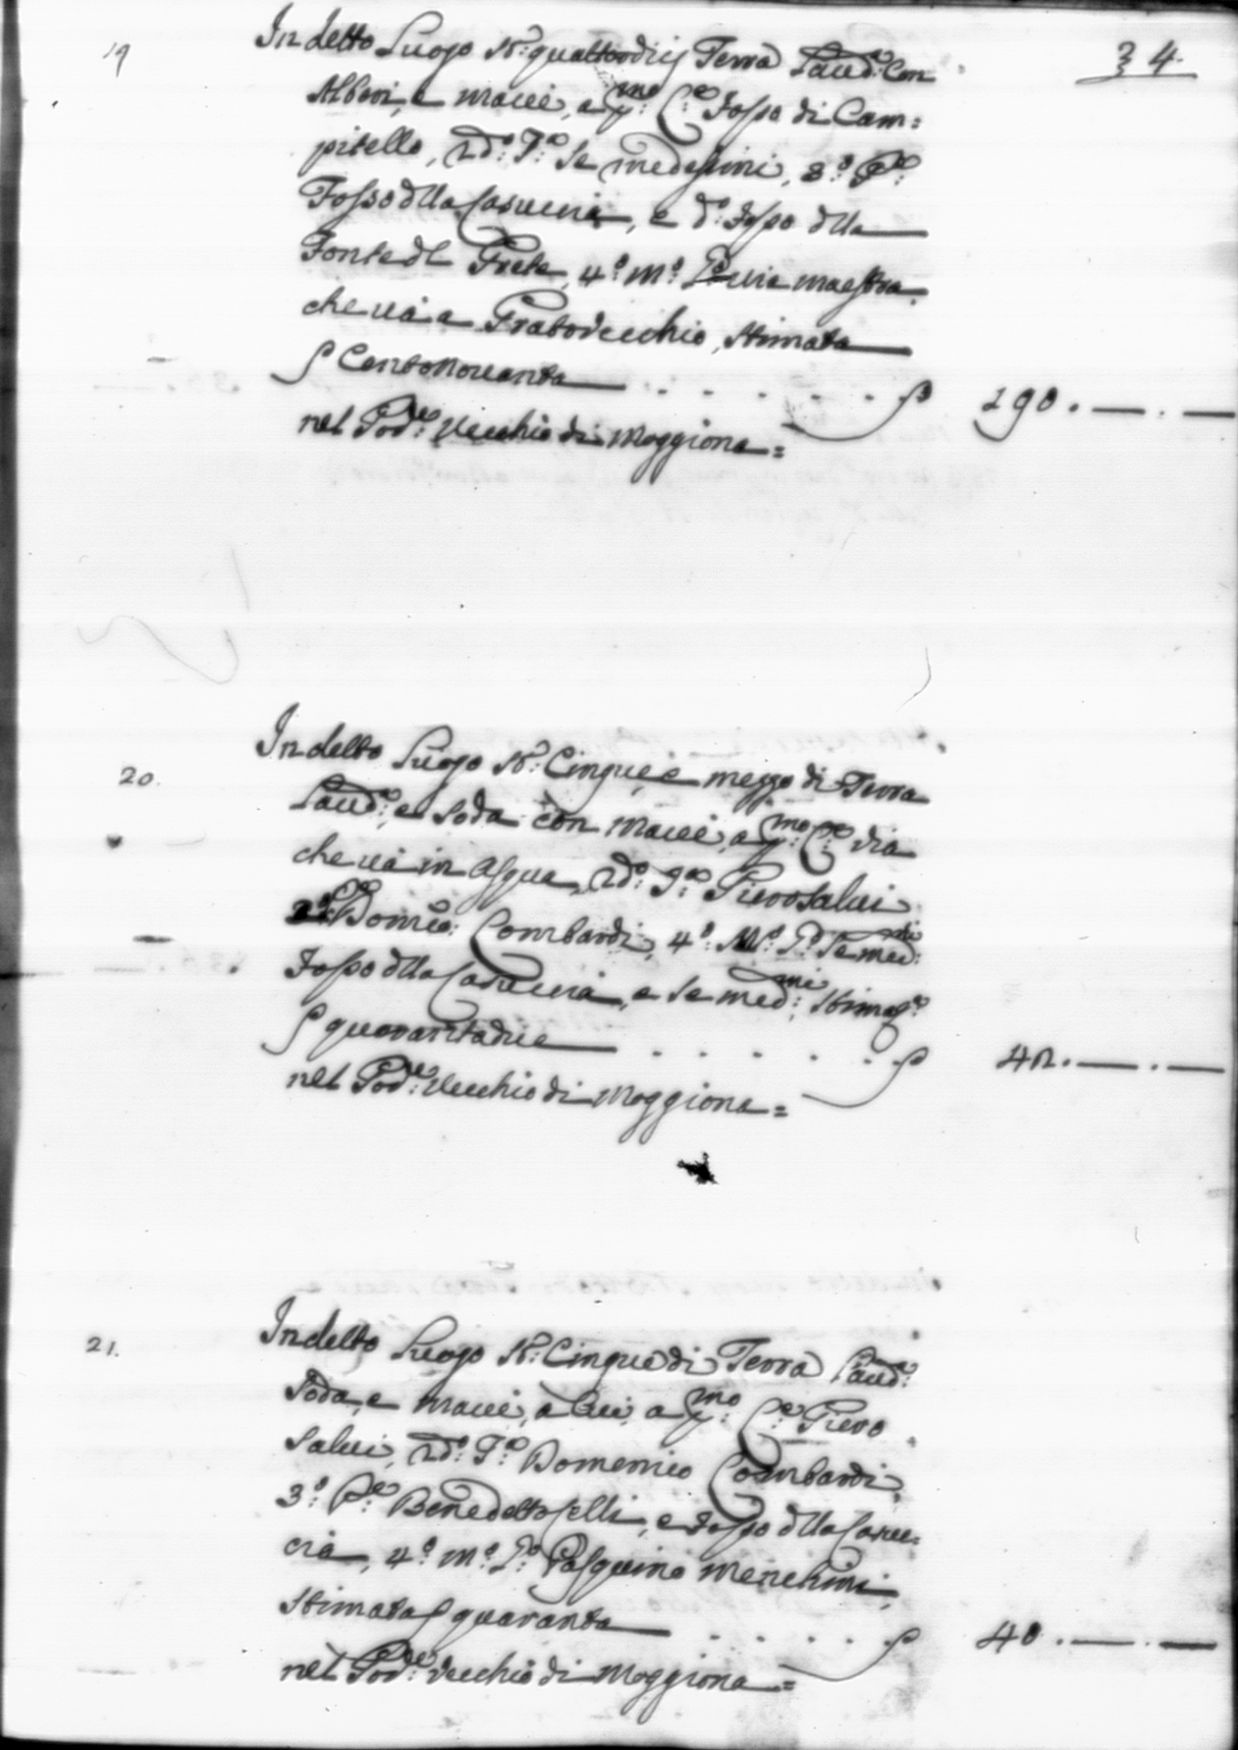 34.
19
In detto Luogo St: quattordicj Terra Laud: Con
Alberi, e macie, a p.mo C.e Fosso di Cam=
pitello, 2do: P.e Se medesimi, 3°: P.e
Fosso dlla Casuccia, e d.o Fosso dlla
Fonte dl Prete, 4°: m°: P.e via maestra
che uà a Pratovecchio, stimata
∫ Centonouanta ∫ 190.—.—
nel Pod.e: Vecchio di Moggiona=
20.
In detto Luogo St: Cinque, e mezzo di Terra
Laud:, e Soda con macie, a p.mo C.e via
che uà in Acqua, 2do: P.e Piero Salui
3°: P.e Domco: Lombardi, 4°: M°: P.e Se med.mi
Fosso dlla Casuccia, e se med.mi: stimat.a
∫ quarantadue ∫ 42.—.—
nel Pod.e: Vecchio di Moggiona=
21.
In detto Luogo St: Cinque di Terra Laud:
Soda, e macie, a p.mo: C.e Piero
Salui, 2do: P.e Domenico Lombardi,
3°: P.e Benedetto Celli, e Fosso dlla Casuc=
cia, 4°: m°: P.e Pasquino Menchini,
stimata ∫ quaranta ∫ 40.—.—
nel Pod.e: Vecchio di Moggiona=